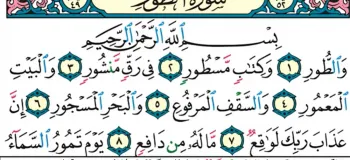 سُورَةُ الطُّورِ
بِسْمِ اللَّهِ الرَّحْمَٰنِ الرَّحِيمِ
وَالطُّورِ ١ وَكِتَابٍ مَسْطُورٍ ٢ فِي رَقٍّ مَنْشُورٍ ٣ وَالْبَيْتِ
الْمَعْمُورِ ٤ وَالسَّقْفِ الْمَرْفُوعِ ٥ وَالْبَحْرِ الْمَسْجُورِ ٦ إِنَّ
عَذَابَ رَبِّكَ لَوَاقِعٌ ٧ مَا لَهُ مِنْ دَافِعٍ ٨ يَوْمَ تَمُورُ السَّمَاءُ